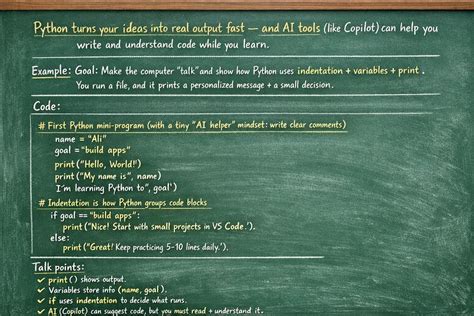 Python turns your ideas into real output fast — and AI tools (like Copilot) can help you
write and understand code while you learn.
Example: Goal: Make the computer "talk" and show how Python uses indentation + variables + print .
You run a file, and it prints a personalized message + a small decision.
Code:
# First Python mini-program (with a tiny "AI helper" mindset: write clear comments)
name = "Ali"
goal = "build apps"
print ("Hello, World!')
print ("My name is", name)
I'm learning Python to", goal')
# Indentation is how Python groups code blocks
if goal == "build apps":
print ('Nice! Start with small projects in VS Code.').
else:
print ("Great! Keep practicing 5-10 lines daily.').
Talk points:
✓ print () shows output.
✓ Variables store info (name, goal).
✓ if uses indentation to decide what runs.
✓ AI (Copilot) can suggest code, but you must read + understand it.